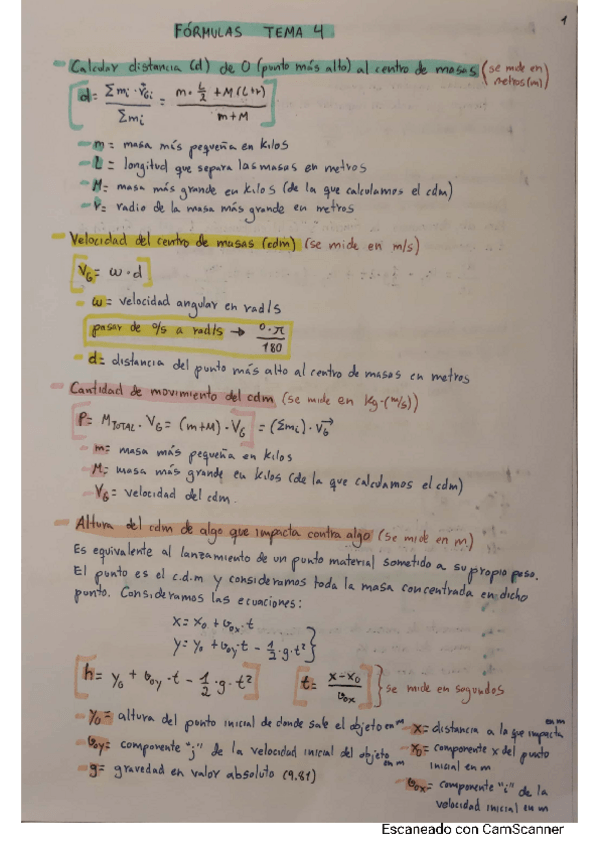 1
FÓRMULAS TEMA 4
- Calcular distancia (d) de O (punto más alto) al centro de masas (se mide en metros (m))
[d = Σmi · r⃗Gi / Σmi = m · L/2 + M(L+r) / m+M]
- m = masa más pequeña en kilos
- L = longitud que separa las masas en metros
- M = masa más grande en kilos (de la que calculamos el cdm)
- r = radio de la masa más grande en metros
- Velocidad del centro de masas (cdm) (se mide en m/s)
[VG = ω · d]
- ω = velocidad angular en rad/s
pasar de º/s a rad/s → º · π / 180
- d = distancia del punto más alto al centro de masas en metros
- Cantidad de movimiento del cdm (se mide en kg·(m/s))
[P = MTOTAL · VG = (m+M) · VG] = (Σmi) · V⃗G
- m = masa más pequeña en kilos
- M = masa más grande en kilos (de la que calculamos el cdm)
- VG = velocidad del cdm.
- Altura del cdm de algo que impacta contra algo (se mide en m)
Es equivalente al lanzamiento de un punto material sometido a su propio peso.
El punto es el c.d.m y consideramos toda la masa concentrada en dicho
punto. Consideramos las ecuaciones:
x = x0 + v0x · t
y = y0 + v0y · t - 1/2 · g · t² }
[h = y0 + v0y · t - 1/2 · g · t²] [t = x - x0 / v0x] } se mide en segundos
- y0 = altura del punto inicial de donde sale el objeto en m
- v0y = componente "j" de la velocidad inicial del objeto en m
- g = gravedad en valor absoluto (9.81)
- x = distancia a la que impacta en m
- x0 = componente x del punto
inicial en m
- v0x = componente "i" de la
velocidad inicial en m
Escaneado con CamScanner